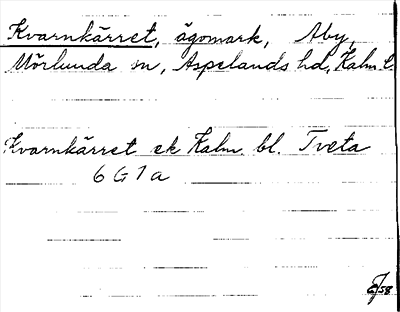 Kvarnkärret, ägomark, Åby,
Mörlunda sn, Aspelands hd, Kalm. l.
Kvarnkärret ek Kalm. bl. Tveta
6 G 1 a